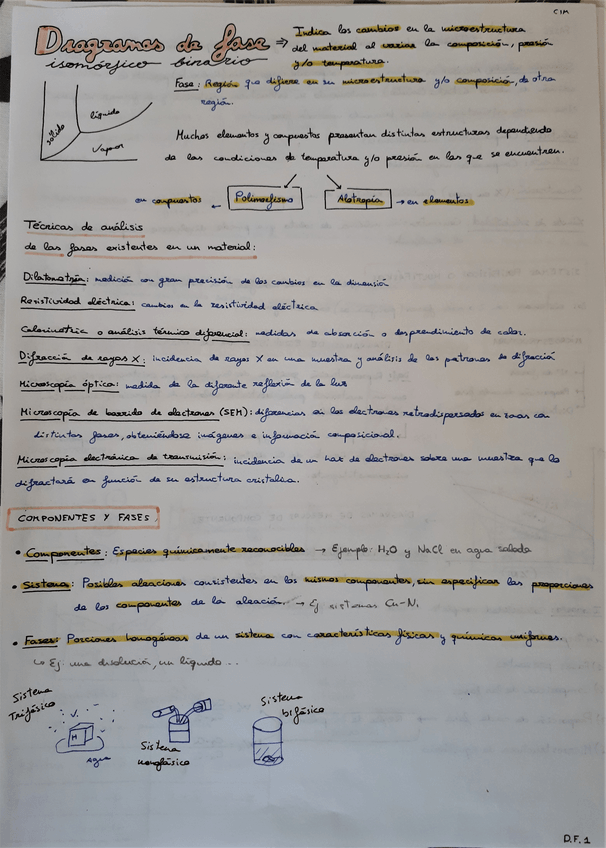 CIM
Diagramas de fase
isomórfico binario
→ Indica los cambios en la microestructura
del material al variar la composición, presión
y/o temperatura.
Fase: Región que difiere en su microestructura y/o composición, de otra
región.
sólido
líquido
Vapor
Muchos elementos y compuestos presentan distintas estructuras dependiendo
de las condiciones de temperatura y/o presión en las que se encuentren.
en compuestos ← Polimorfismo Alotropía → en elementos
Técnicas de análisis
de las fases existentes en un material:
Dilatometría: medición con gran precisión de los cambios en la dimensión
Resistividad eléctrica: cambios en la resistividad eléctrica
Calorimetría o análisis térmico diferencial: medidas de absorción o desprendimiento de calor.
Difracción de rayos X: incidencia de rayos X en una muestra y análisis de los patrones de difracción
Microscopía óptica: medida de la diferente reflexión de la luz
Microscopía de barrido de electrones (SEM): diferencias en los electrones retrodispersados en zonas con
distintas fases, obteniéndose imágenes e información composicional.
Microscopía electrónica de transmisión: incidencia de un haz de electrones sobre una muestra que lo
difractará en función de su estructura cristalina.
COMPONENTES Y FASES.
• Componentes: Especies químicamente reconocibles → Ejemplo: H₂O y NaCl en agua salada
• Sistema: Posibles aleaciones consistentes en los mismos componentes, sin especificar las proporciones
de los componentes de la aleación. → Ej sistemas Cu-Ni
• Fases: Porciones homogéneas de un sistema con características físicas y químicas uniformes.
↳ Ej. una disolución, un líquido...
Sistema
Trifásico
H
Agua
Sistema
monofásico
Sistema
bifásico
D.F. 1